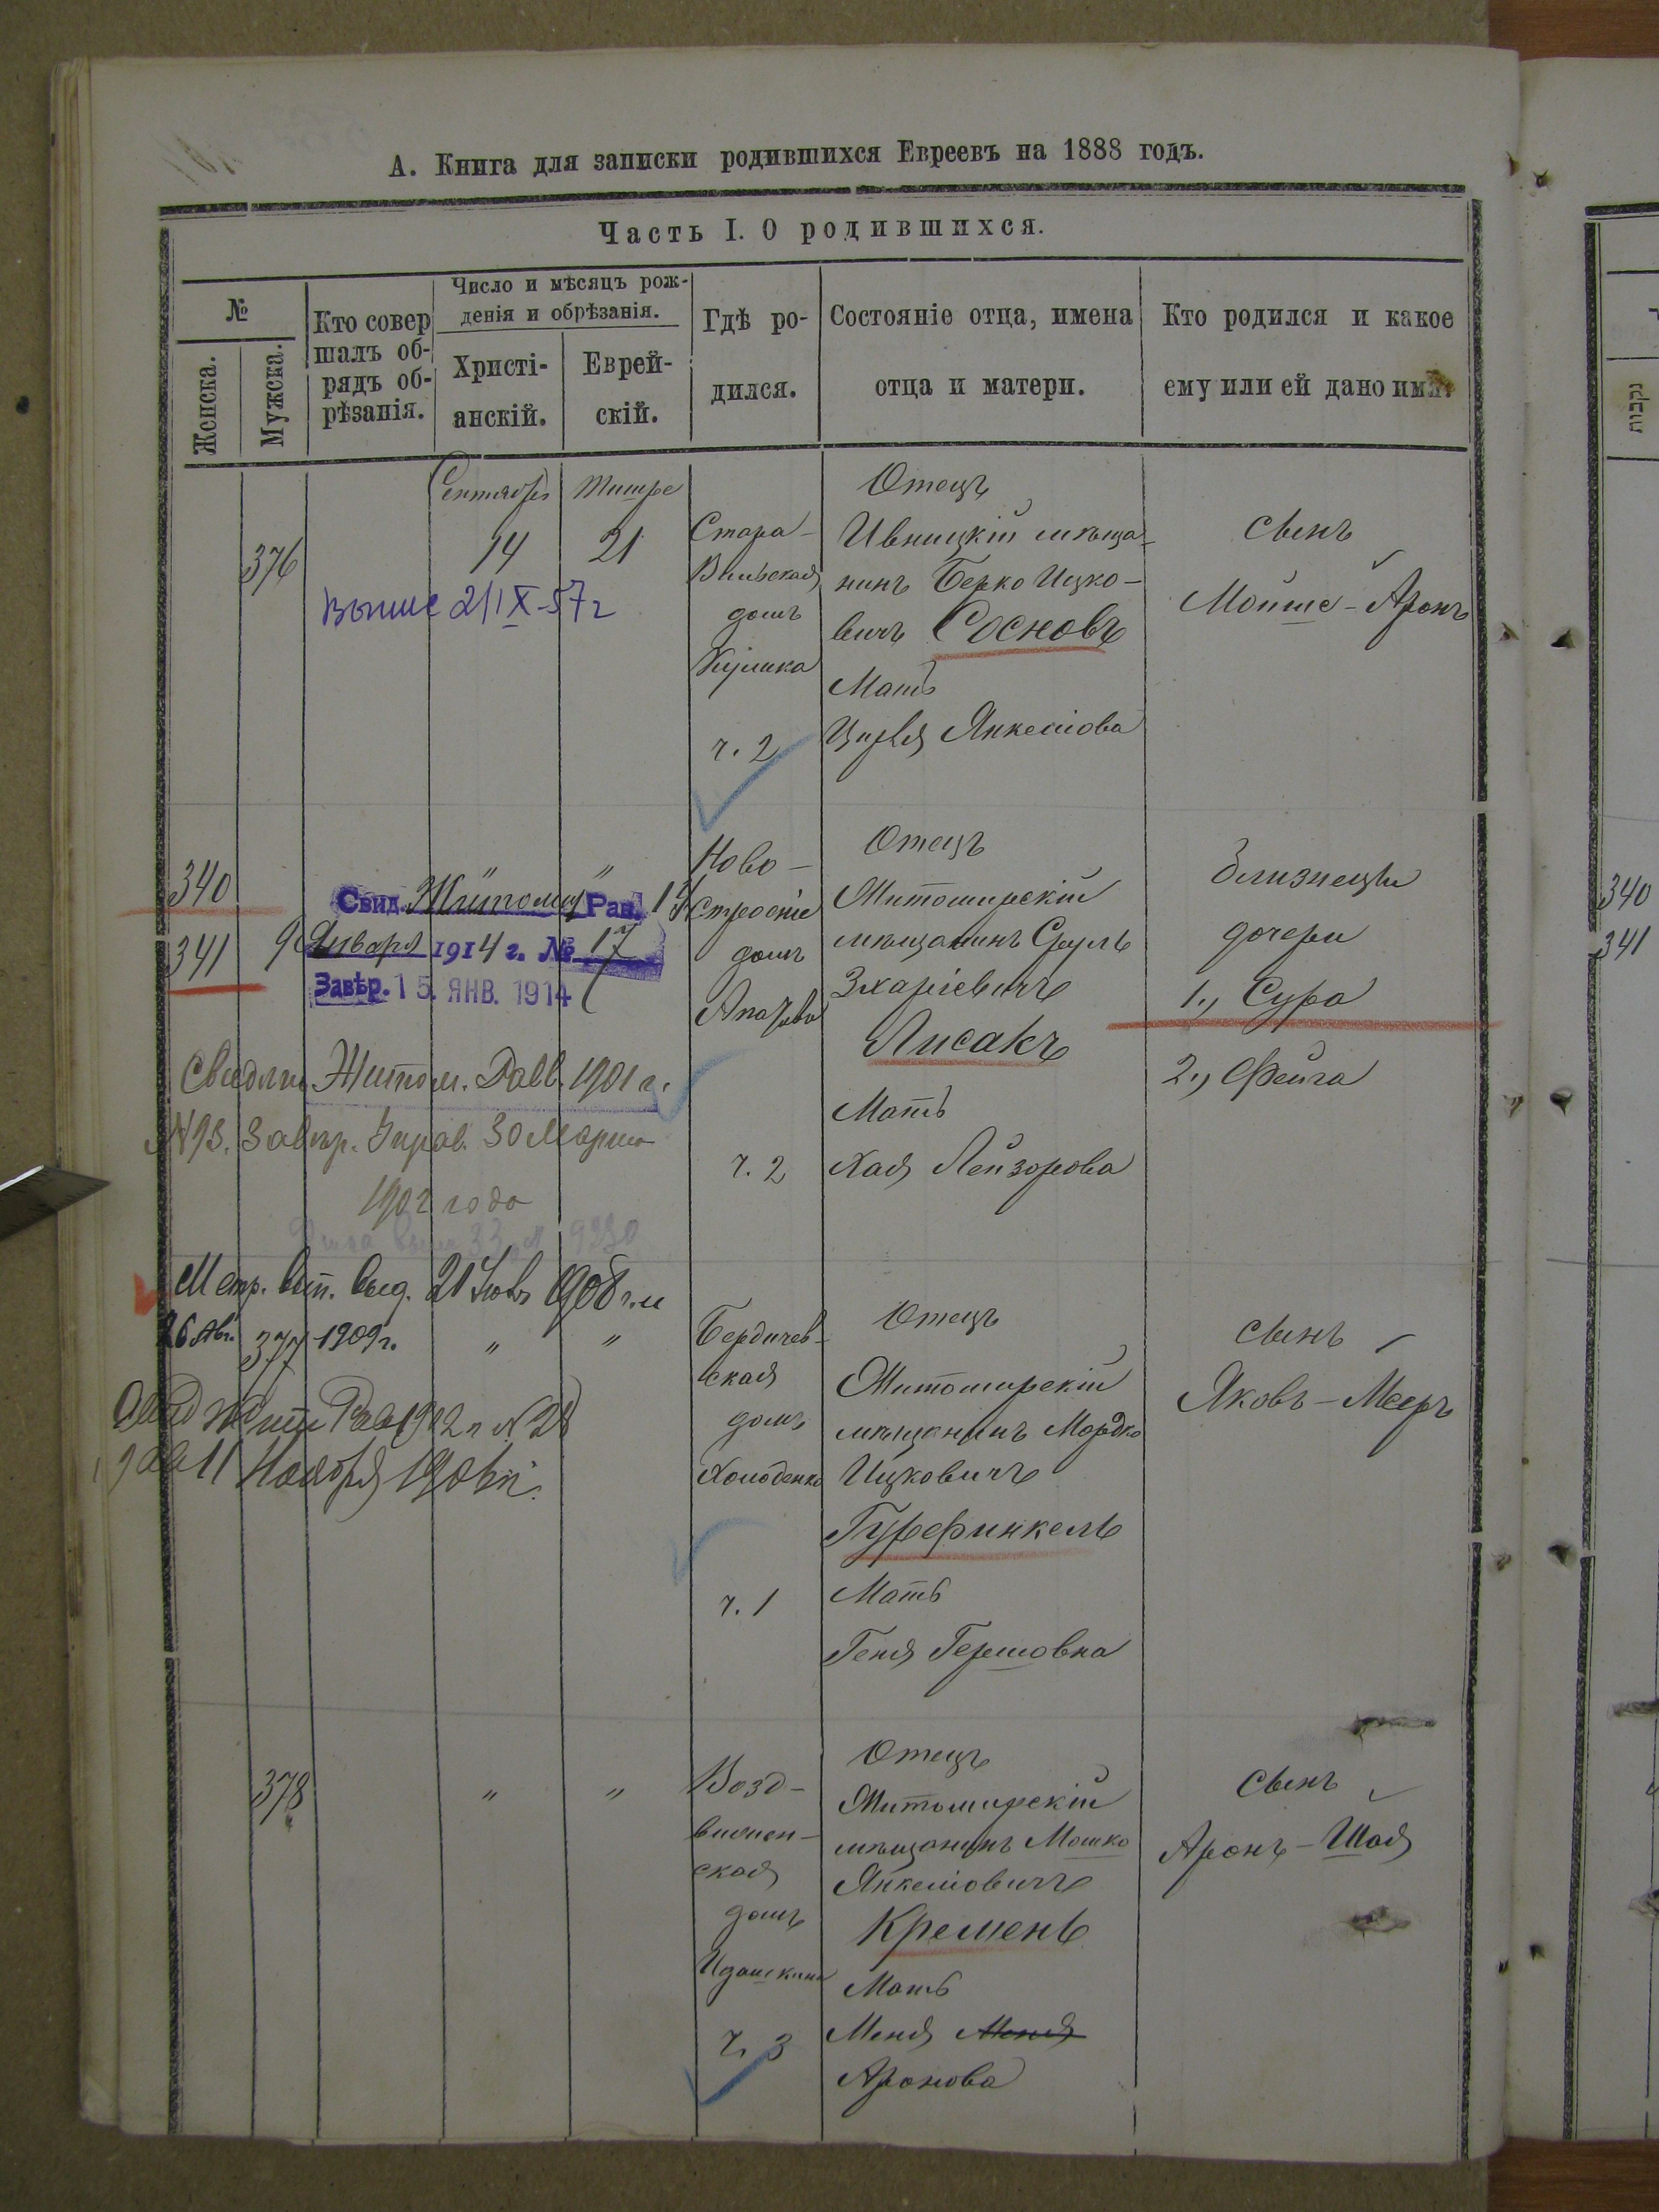 А. Книга для записки родившихся Евреевъ на 1888 годъ.
Часть I. О родившихся.
№
Женска.
Мужска.
Кто совер
шалъ об-
рядъ об-
рѣзанія.
Число и мѣсяцъ рож-
денія и обрѣзанія.
Христі-
анскій.
Еврей-
скій.
Гдѣ ро-
дился.
Состояніе отца, имена
отца и матери.
Кто родился и какое
ему или ей дано имя.
376
Сентября
14
Тишре
21
выпис 2/IX-57г
Стара-
Вильская
домъ
Кулика
ч. 2
Отецъ
Ивницкій мѣща-
нинъ Берко Ицко-
вичъ Сосновъ
Мать
Цирля Янкелiова
сынъ
Мойше-Аронъ
340
341
"
"
Свид. Житомир Рав.
9 Января 1914 г. № 17
Завѣр. 15. ЯНВ. 1914
Свидѣт. Житом. Равв. 1901 г.
№ 93. Завѣр. Управ. 30 Марта
1902 года
Ново-
строеніе
домъ
ч. 2
Отецъ
Житомирскій
мѣщанинъ Сруль
Зхарiевичъ
Лисакъ
Мать
Хая Лейзорова
близнецы
дочери
1., Сура
2., Фейга
Метр. вып. выд. 21 1908 г. и
26 Авг. 1909 г.
377
"
"
11 Ноября
Бердичев-
ская
домъ
Холоденко
ч. 1
Отецъ
Житомирскій
мѣщанинъ Мордко
Ицковичъ
Гурфинкель
Мать
Геня Гершовна
сынъ
Яковъ-Мееръ
378
"
"
Возд-
вижен-
ская
домъ
ч. 3
Отецъ
Житомирскій
мѣщанинъ Мошко
Янкелiовичъ
Кремень
Мать
Меня Меня
Аронова
сынъ
Аронъ-Шая
נקבות
340
341